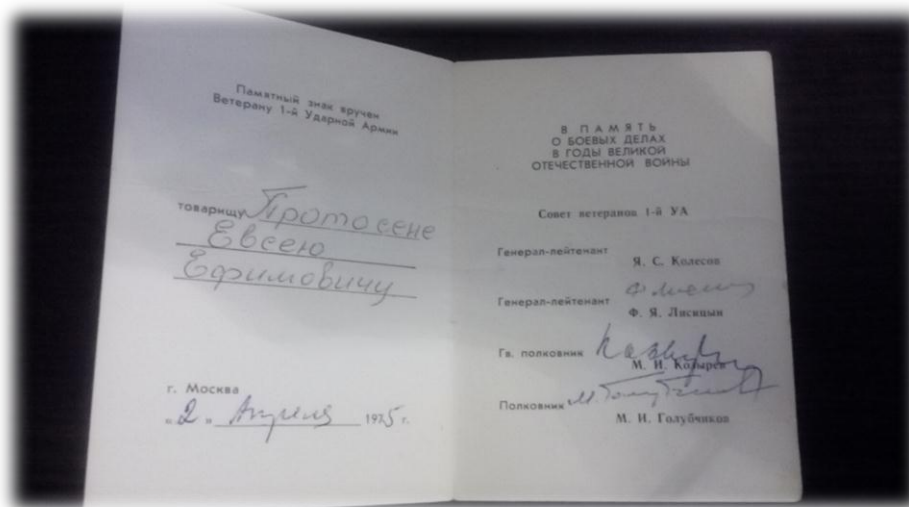 Памятный знак вручен
Ветерану 1-й Ударной Армии
товарищу Протасене
Евсею
Ефимовичу
г. Москва
"2" Апреля 1975 г.
В ПАМЯТЬ
О БОЕВЫХ ДЕЛАХ
В ГОДЫ ВЕЛИКОЙ
ОТЕЧЕСТВЕННОЙ ВОЙНЫ
Совет ветеранов 1-й УА
Генерал-лейтенант
Я. С. Колесов
Генерал-лейтенант
Ф. Я. Лисицын
Гв. полковник
М. И. Козырев
Полковник
М. И. Голубчиков